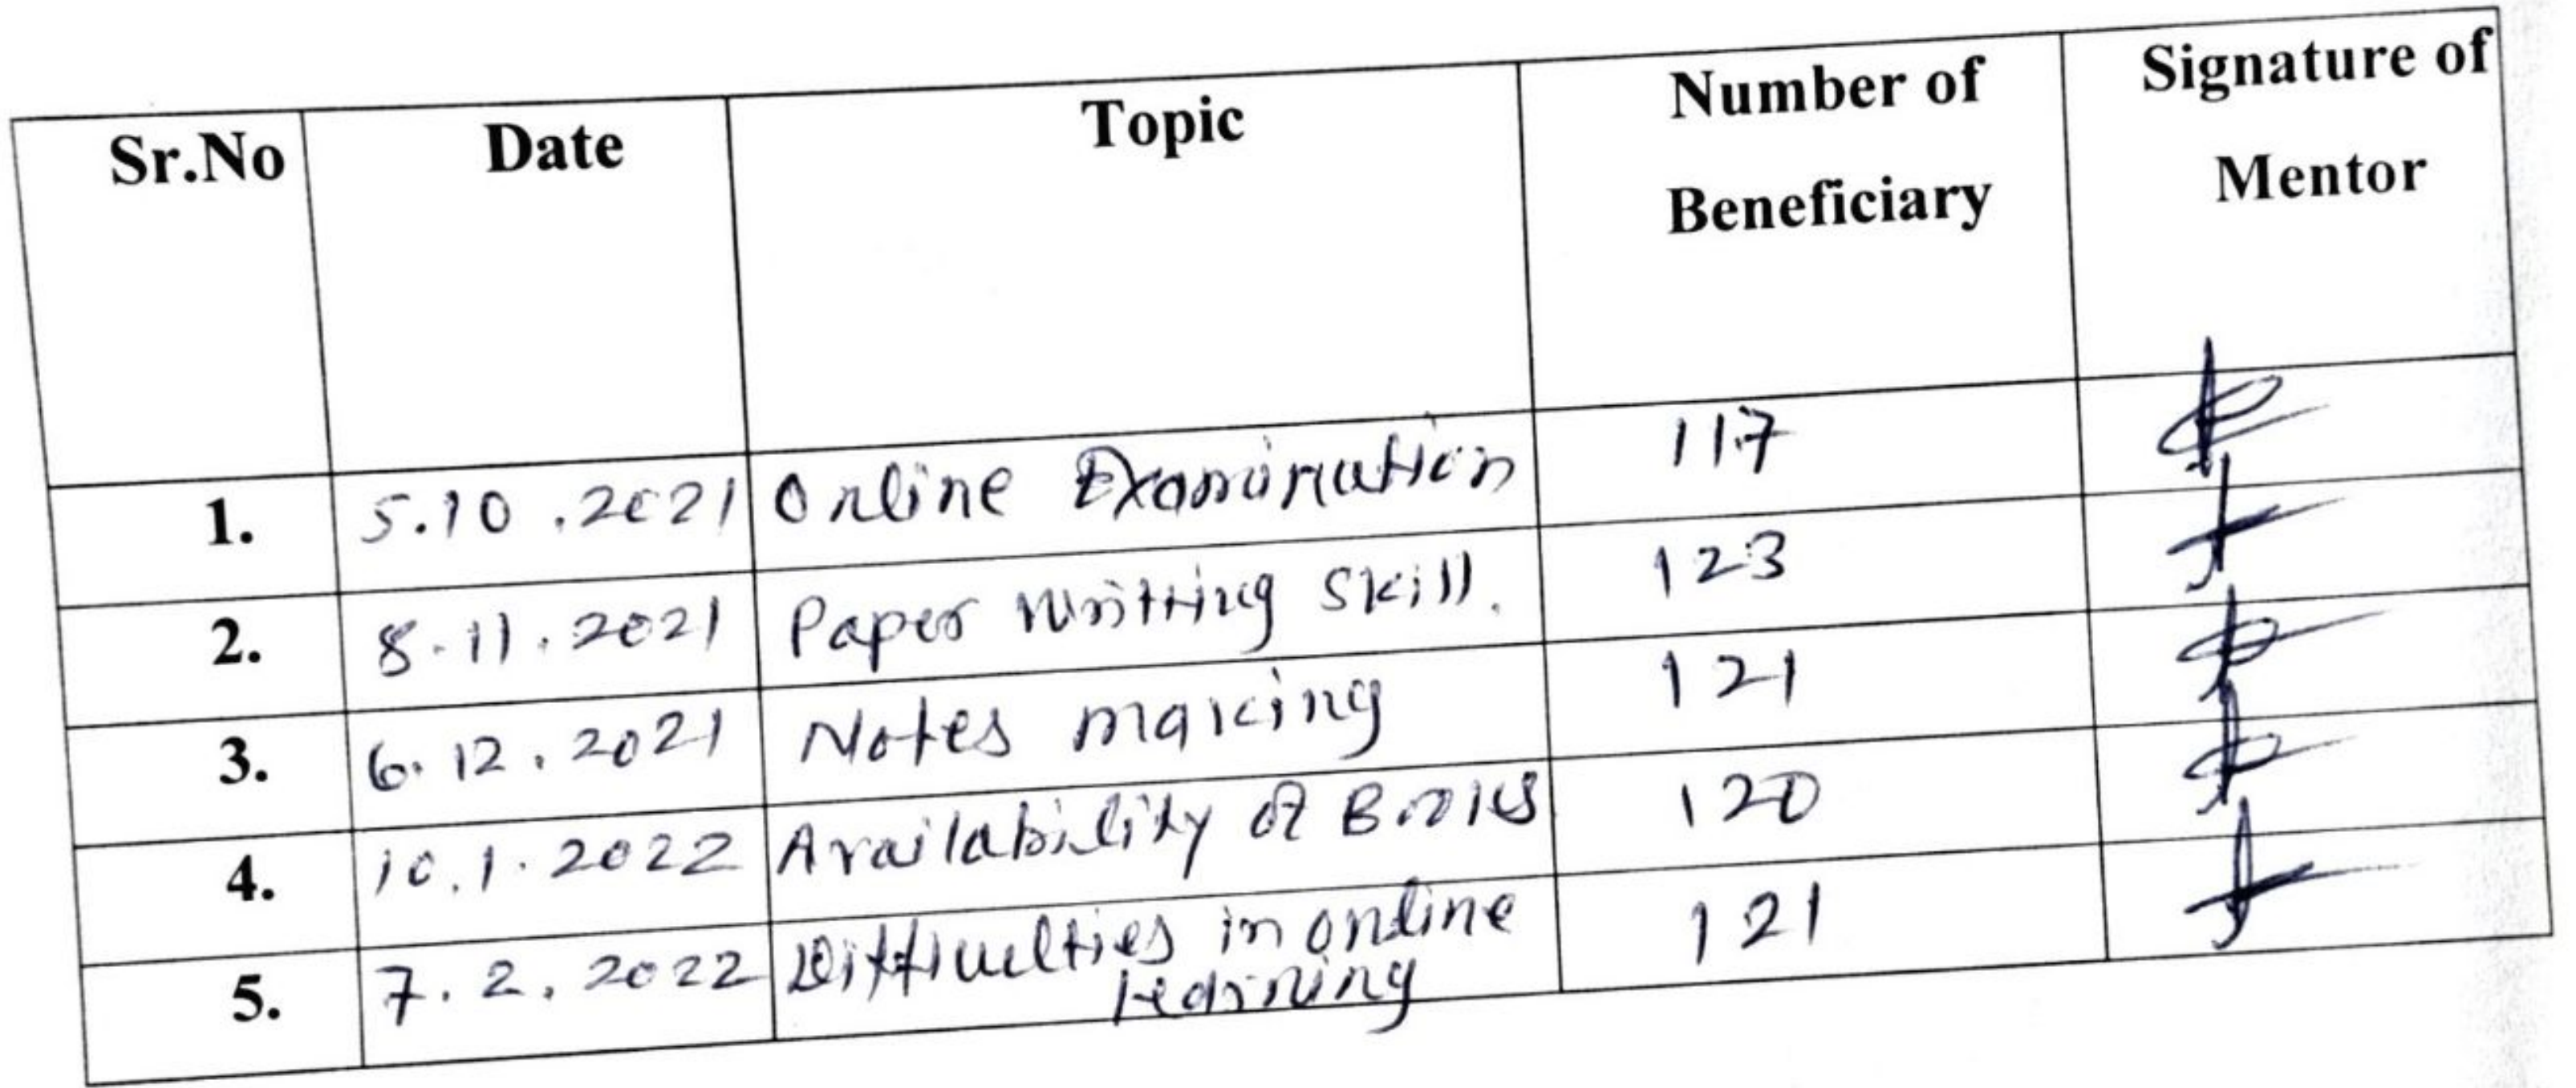 Sr.No Date Topic Number of Signature of
Beneficiary Mentor
1. 5.10.2021 Online Examination 117
2. 8.11.2021 Paper Writting Skill. 123
3. 6.12.2021 Notes making 121
4. 10.1.2022 Availability of Books 120
5. 7.2.2022 Difficulties in online 121
learning